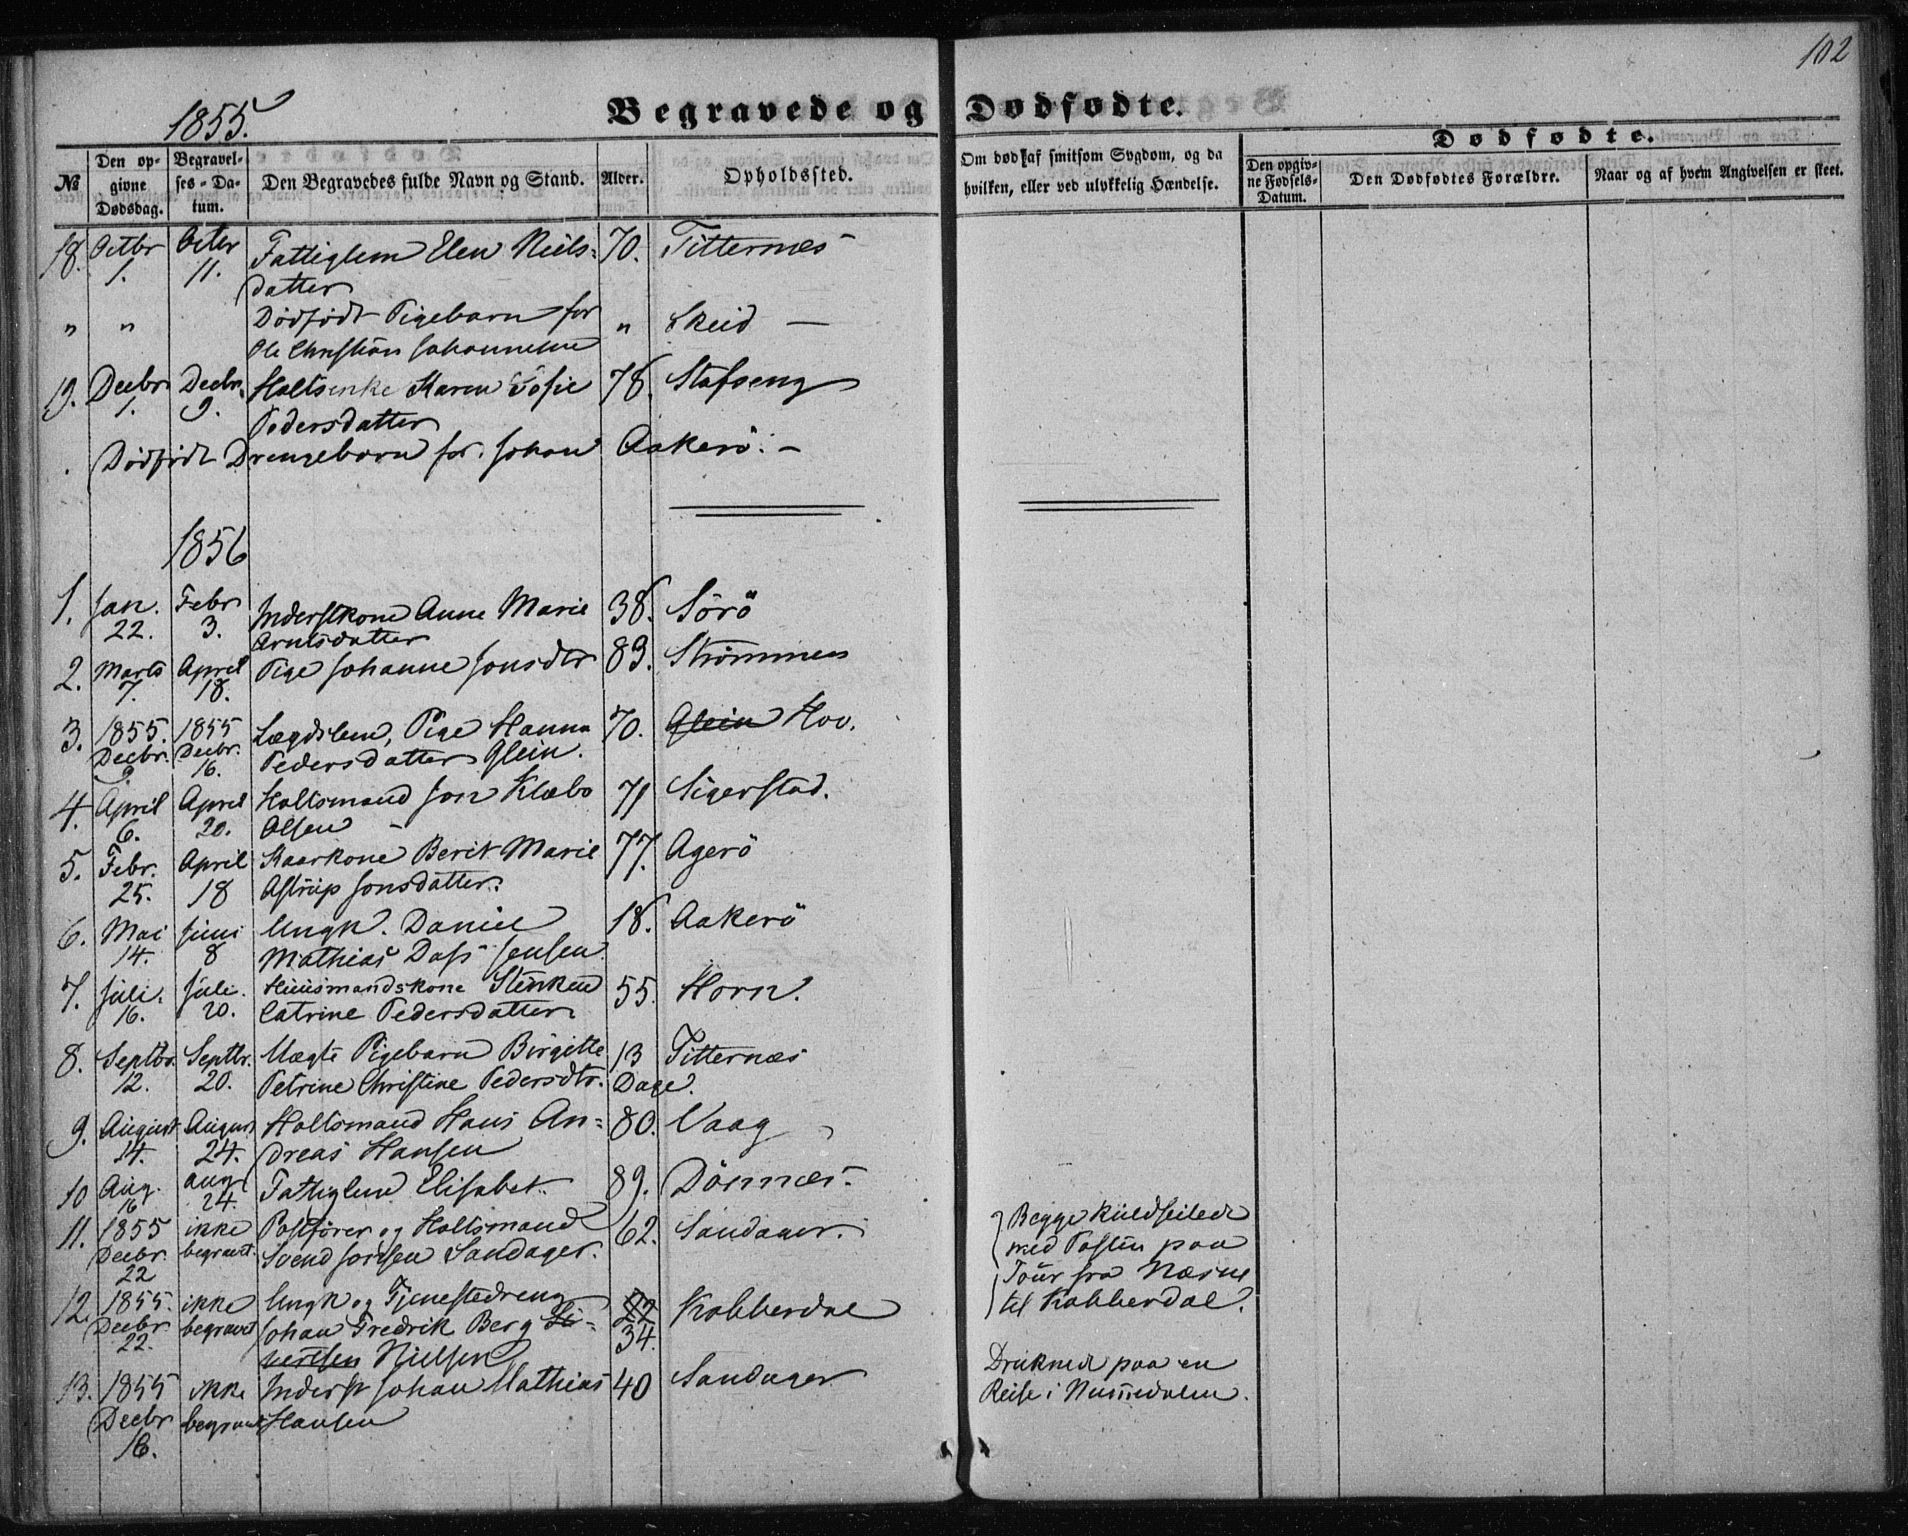 102
1855.
Begravede og Dødfødte.
Dødfødte.
№
Den op-
givne
Dødsdag.
Begravel-
ses-Da-
tum.
Den Begravedes fulde Navn og Stand.
Alder.
Opholdssted.
Om død af smitsom Sygdom, og da
hvilken, eller ved ulykkelig Hændelse.
Den opgiv-
ne Fødsels-
Datum.
Den Dødfødtes Forældre.
Naar og af hvem Angivelsen er skeet.
18. Octbr Octbr Fattiglem Elen Niels- 70. Titternes
1. 11. datter
" " Dødfødt Pigebarn for " Skeid —
Ole Christian Johannesen
19. Decbr Decbr. Holtsenke Karen Sofie 78. Stafseng
1. 9. Pedersdatter
Dødfødt Drengebarn for Johan Aakerö. –
1856
1. Jan. Febr Inderstkone Anne Marie 38. Sörö
22. 3. Arntsdatter
2. Marts April Pige Johanne Jonsdtr 83. Strømmen
7. 18.
3. 1855. 1855 Lægdslem, Pige Hanna 70. Glein Hov.
Decbr. Decbr. Pedersdatter Glein.
9. 16.
4. April April Holtsmand Jon Klæbo 71 Sigerstad.
6. 20. Olsen
5. Febr. April Kaarkone Berit Marie 77. Agerö
25. 18 Astrup Jonsdatter.
6. Mai Juni Ungk. Daniel 18. Aakerö
14. 8 Mathias Dass Jensen
7. Juli. Juli. Huusmandskone Stinken 55. Horn.
16. 20. Catrine Pedersdatter
8. Septbr. Septbr. Uægte Pigebarn Birgitte 13 Titternæs
12. 20. Petrine Christine Pedersdtr. Dage.
9. August August Holtsmand Hans An- 80. Vaag
14. 24. dreas Hansen
10 Aug. Aug Fattiglem Elisabet. 89. Dönnæs.
16 24.
11. 1855 ikke Postfører og Holtsmand 62. Sandager. Begge kuldseilede
Decbr. begravet. Svend Jonsen Sandager. med Posten paa
22 Tour fra Næsne
12. 1855. ikke Ungk og Tjenestedreng 22 Kobberdal til Kobberdal.
Decbr begravet Johan Fredrik Berg Si- 34.
22. vertsen Nielsen
13. 1855 ikke Inderst Johan Mathias 40 Sandager Druknede paa en
Decbr begravet Hansen Reise i Numedalen.
16.